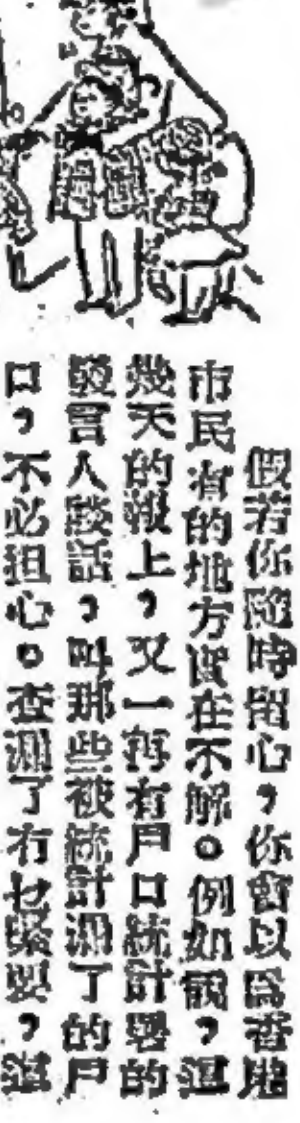 假若你隨時留心，你會以為香港
市民有的地方實在不解。例如說，這
幾天的報上，又一再有戶口統計署的
發言人談話，叫那些被統計漏了的戶
口，不必担心。查漏了冇乜緊要，這